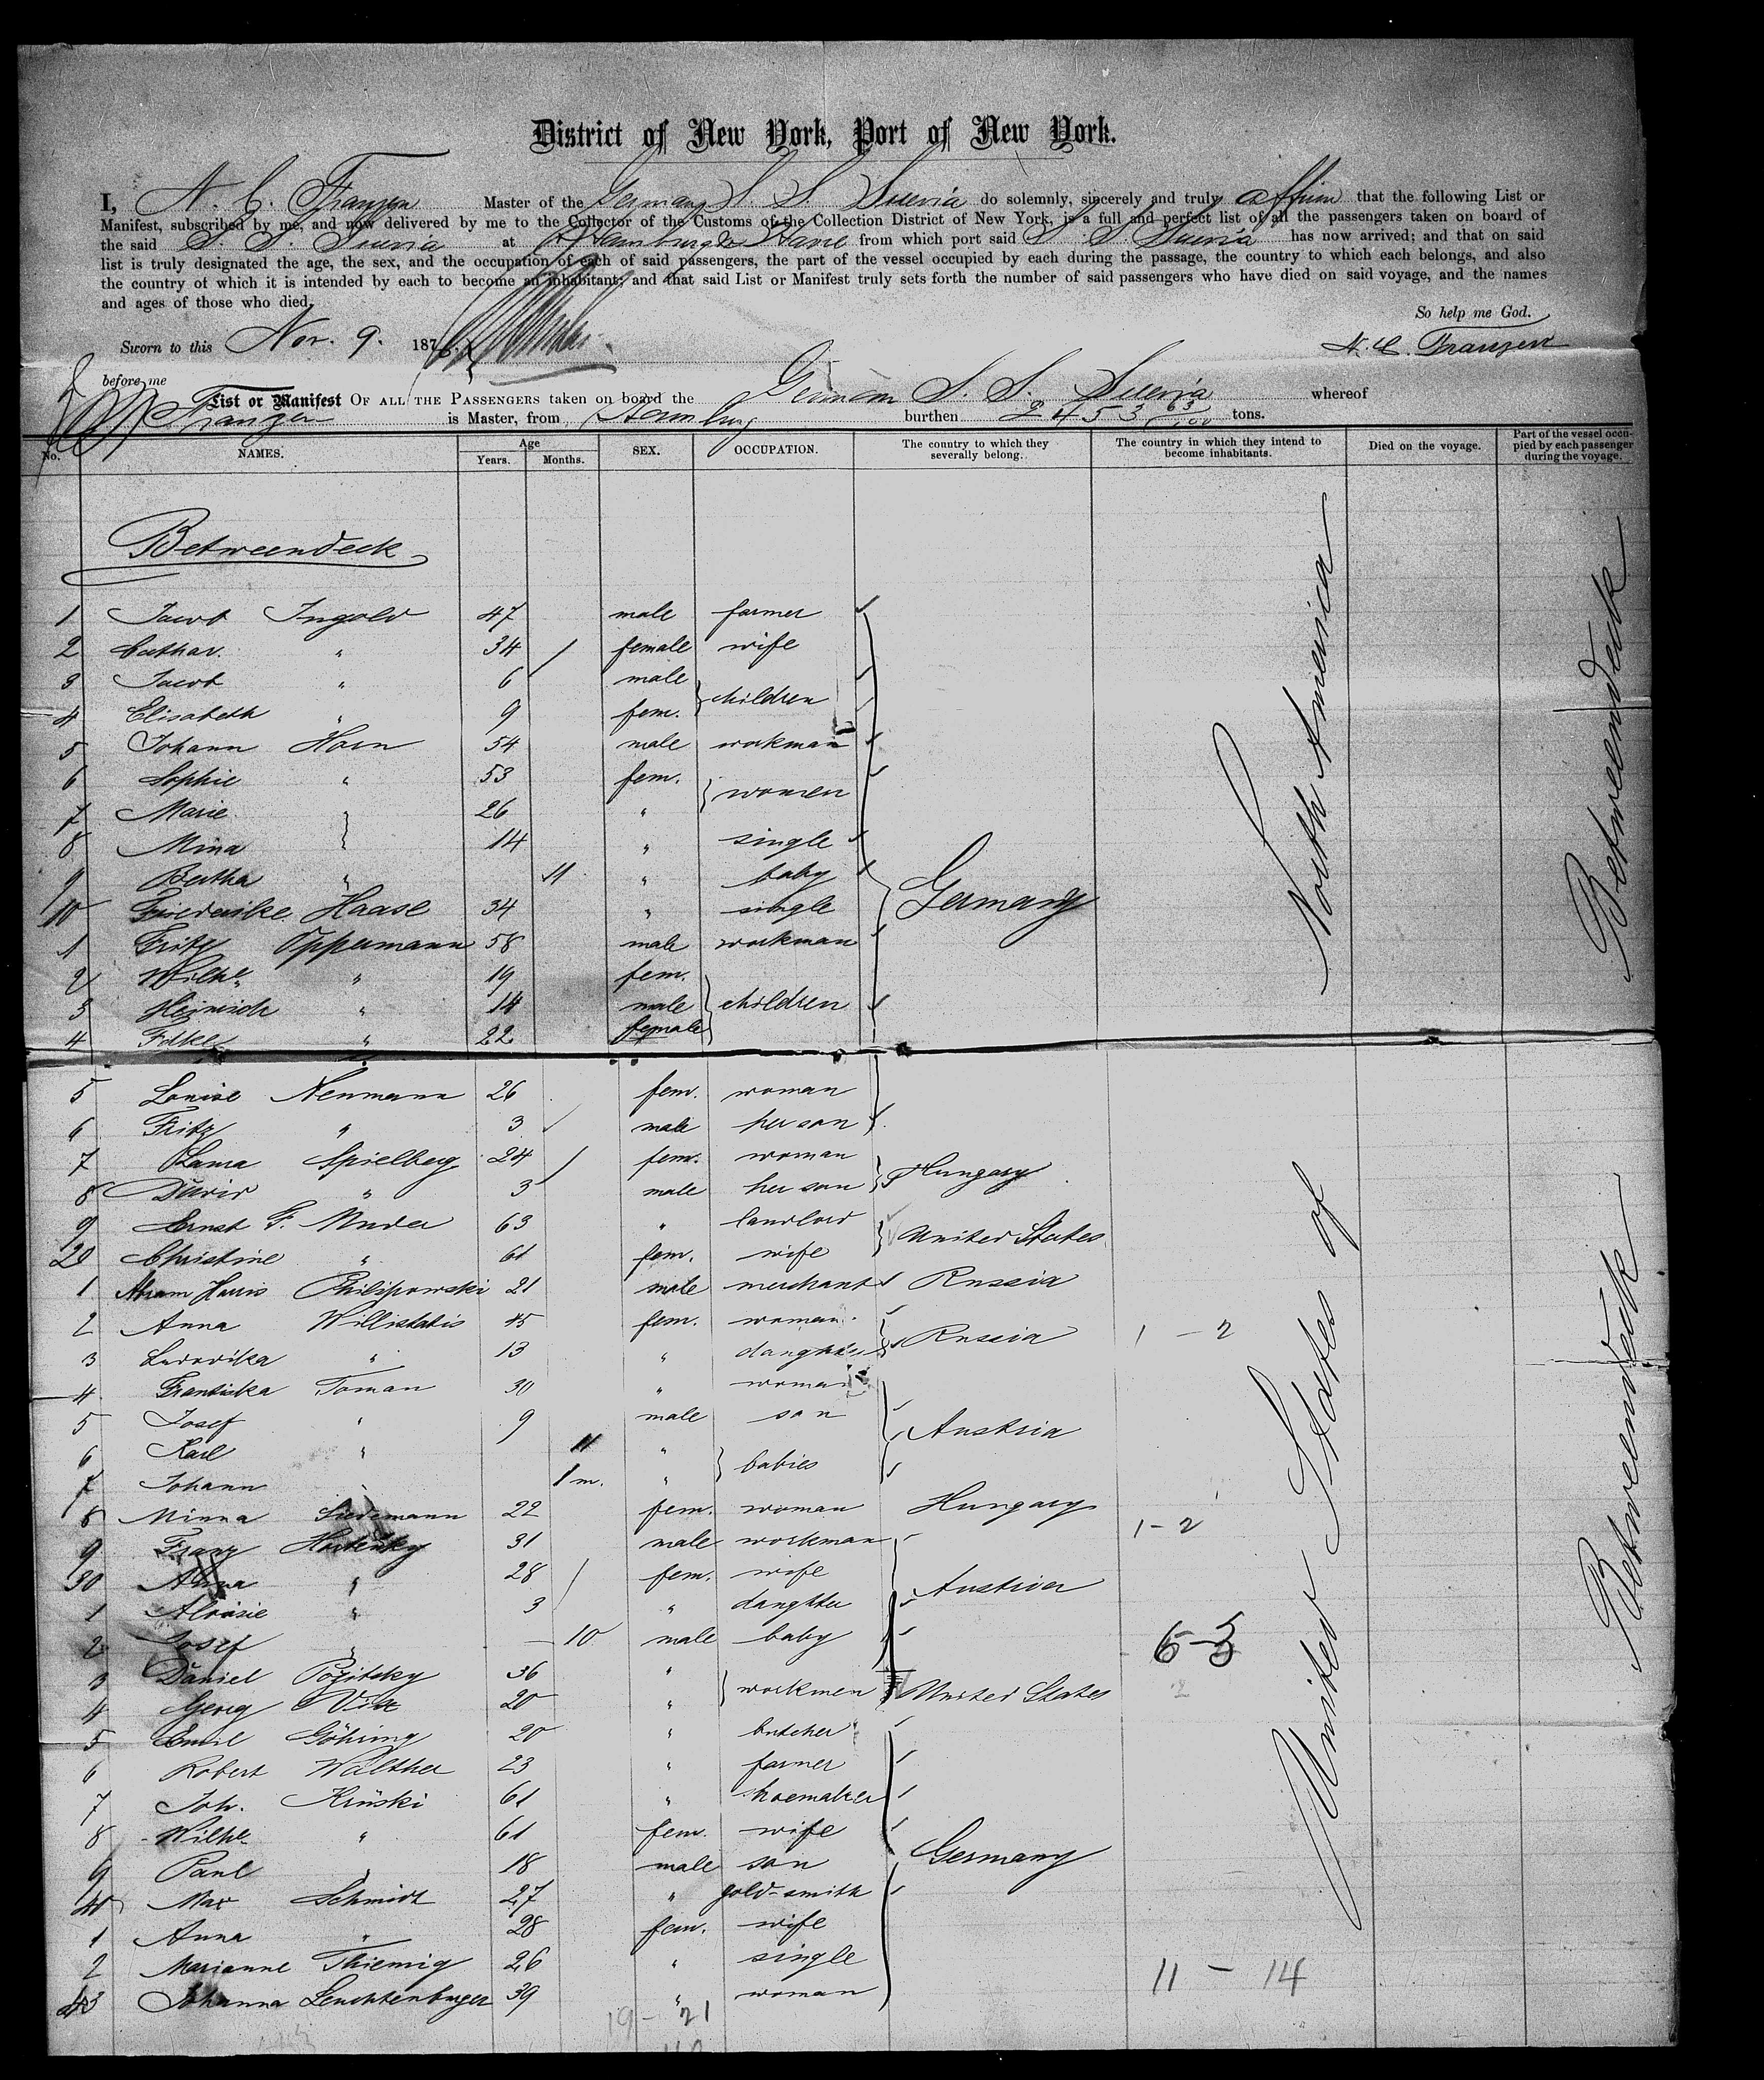 District of New York, Port of New York.
I, N. C. Franzen Master of the German S. S. Suevia do solemnly, sincerely and truly affirm that the following List or
Manifest, subscribed by me, and now delivered by me to the Collector of the Customs of the Collection District of New York, is a full and perfect list of all the passengers taken on board of
the said S. S. Suevia at Hamburg & Havre from which port said S. S. Suevia has now arrived; and that on said
list is truly designated the age, the sex, and the occupation of each of said passengers, the part of the vessel occupied by each during the passage, the country to which each belongs, and also
the country of which it is intended by each to become an inhabitant; and that said List or Manifest truly sets forth the number of said passengers who have died on said voyage, and the names
and ages of those who died.
So help me God.
Sworn to this Nov. 9. 1876. N. C. Franzen
before me
List or Manifest OF ALL THE PASSENGERS taken on board the German S. S. Suevia whereof
Franzen is Master, from Hamburg burthen 2453 63/100 tons.
No. NAMES. Age Years. Months. SEX. OCCUPATION. The country to which they severally belong. The country in which they intend to become inhabitants. Died on the voyage. Part of the vessel occupied by each passenger during the voyage.
Betweendeck
1 Jacob Ingold 47 male farmer
2 Cathar. " 34 female wife
3 Jacob " 6 male children
4 Elisabeth " 9 fem.
5 Johann Horn 54 male workman
6 Sophie " 53 fem. women
7 Marie " 26 "
8 Mina " 14 " single
9 Bertha " 11 " baby
10 Friederike Haase 34 " single Germany
1 Fritz Oppermann 58 male workman
2 Wilh. " 19 fem.
3 Heinrich " 14 male children
4 Fdke " 22 female
5 Louise Neumann 26 fem. woman
6 Fritz " 3 male her son
7 Spielberg 24 fem. woman Hungary
8 David " 3 male her son
9 Ernst F. 63 " landlord United States
20 Christine " 61 fem. wife
1 Abram Harris Philipowski 21 male merchant Russia
2 Anna 45 fem. woman Russia 1 - 2
3 Ludovika " 13 " daughter
4 Franziska Toman 30 " woman
5 Josef " 9 male son Austria
6 Karl " 11 " babies
7 Johann " 1 m. "
8 Minna 22 fem. woman Hungary 1 - 2
9 Franz 31 male workman
30 Anna " 28 fem. wife Austria
1 Aloisie " 3 " daughter
2 Josef " 10 male baby 6-3
3 Daniel 36 " workmen United States
4 Georg 20 "
5 Emil Göhring 20 " butcher
6 Robert Walther 23 " farmer
7 Joh. Krüski 61 " shoemaker
8 Wilhe. " 61 fem. wife Germany
9 Paul " 18 male son
40 Max Schmidt 27 " gold-smith
1 Anna " 28 fem. wife
2 Marianne Thiemig 26 " single 11 - 14
43 Johanna Leuchtenburger 39 " woman
19 - 21
North America
United States of
Betweendeck
Betweendeck